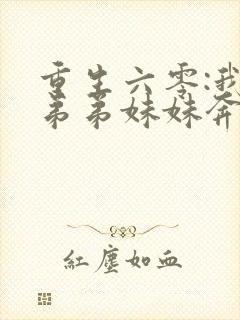 重生六零:我
弟弟妹妹奔
红尘如血